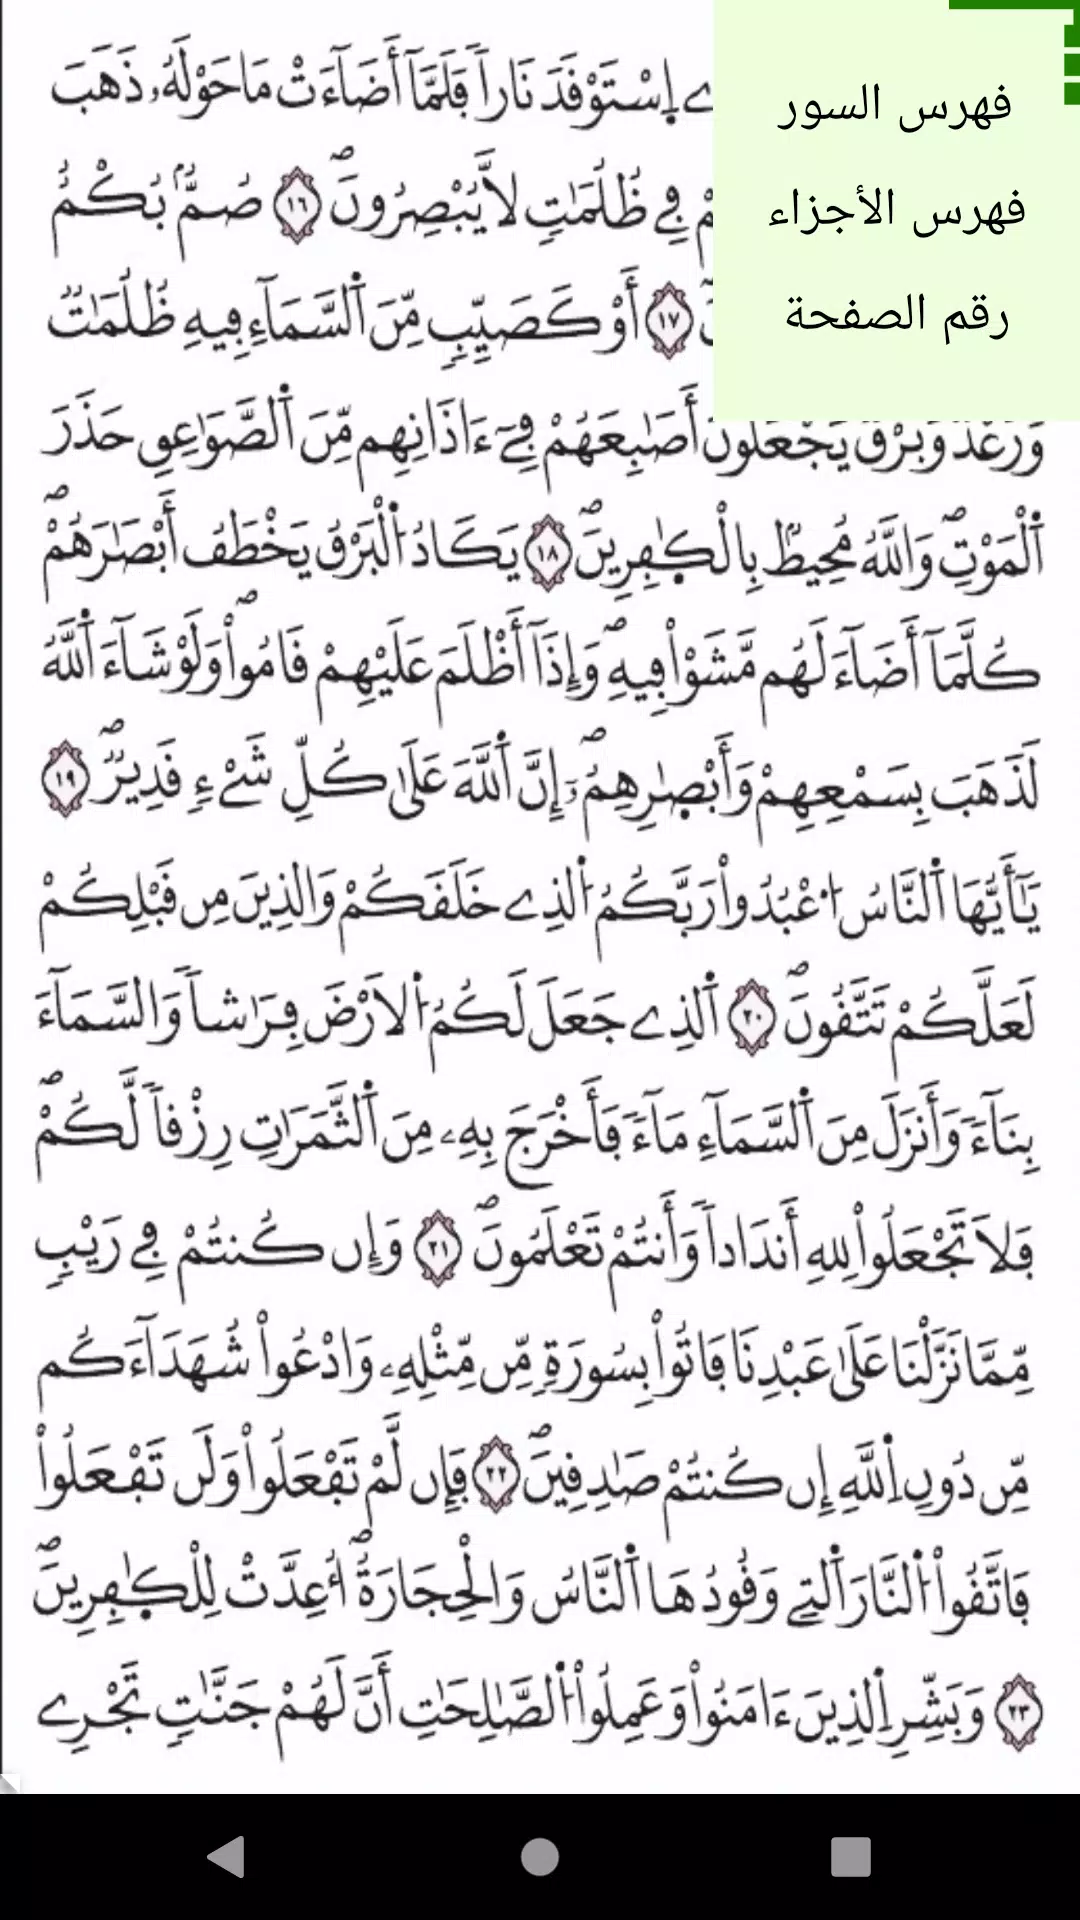 فهرس السور
فهرس الأجزاء
رقم الصفحة
إِسْتَوْقَدَ نَاراٗ فَلَمَّآ أَضَآءَتْ مَا حَوْلَهُۥ ذَهَبَ
فِے ظُلُمَٰتٖ لَّا يُبْصِرُونَۖ ١٦ صُمُّۢ بُكْمٌ
١٧ أَوْ كَصَيِّبٖ مِّنَ اَ۬لسَّمَآءِ فِيهِ ظُلُمَٰتٞ
وَرَعْدٞ وَبَرْقٞ يَجْعَلُونَ أَصَٰبِعَهُمْ فِےٓ ءَاذَانِهِم مِّنَ اَ۬لصَّوَٰعِقِ حَذَرَ
اَ۬لْمَوْتِۖ وَاللَّهُ مُحِيطُۢ بِالْكٰ۪فِرِينَۖ ١٨ يَكَادُ اُ۬لْبَرْقُ يَخْطَفُ أَبْصَٰرَهُمْۖ
كُلَّمَآ أَضَآءَ لَهُم مَّشَوْاْ فِيهِۖ وَإِذَآ أَظْلَمَ عَلَيْهِمْ قَامُواْۖ وَلَوْ شَآءَ اَ۬للَّهُ
لَذَهَبَ بِسَمْعِهِمْ وَأَبْصٰ۪رِهِمُۥٓۖ إِنَّ اَ۬للَّهَ عَلَىٰ كُلِّ شَےْءٖ قَدِيرٞۖ ١٩
يَٰٓأَيُّهَا اَ۬لنَّاسُ اُ۟عْبُدُواْ رَبَّكُمُ اُ۬لذِے خَلَقَكُمْ وَالذِينَ مِن قَبْلِكُمْ
لَعَلَّكُمْ تَتَّقُونَۖ ٢٠ اَ۬لذِے جَعَلَ لَكُمُ اُ۬لَارْضَ فِرَٰشاٗ وَالسَّمَآءَ
بِنَآءٗ وَأَنزَلَ مِنَ اَ۬لسَّمَآءِ مَآءٗ فَأَخْرَجَ بِهِۦ مِنَ اَ۬لثَّمَرَٰتِ رِزْقاٗ لَّكُمْۖ
فَلَا تَجْعَلُواْ لِلهِ أَندَاداٗ وَأَنتُمْ تَعْلَمُونَۖ ٢١ وَإِن كُنتُمْ فِے رَيْبٖ
مِّمَّا نَزَّلْنَا عَلَىٰ عَبْدِنَا فَاتُواْ بِسُورَةٖ مِّن مِّثْلِهِۦ وَادْعُواْ شُهَدَآءَكُم
مِّن دُونِ اِ۬للَّهِ إِن كُنتُمْ صَٰدِقِينَۖ ٢٢ فَإِن لَّمْ تَفْعَلُواْ وَلَن تَفْعَلُواْ
فَاتَّقُواْ اُ۬لنَّارَ اَ۬لتِے وَقُودُهَا اَ۬لنَّاسُ وَالْحِجَارَةُۖ أُعِدَّتْ لِلْكٰ۪فِرِينَۖ
٢٣ وَبَشِّرِ اِ۬لذِينَ ءَامَنُواْ وَعَمِلُواْ اُ۬لصَّٰلِحَٰتِ أَنَّ لَهُمْ جَنَّٰتٖ تَجْرِے